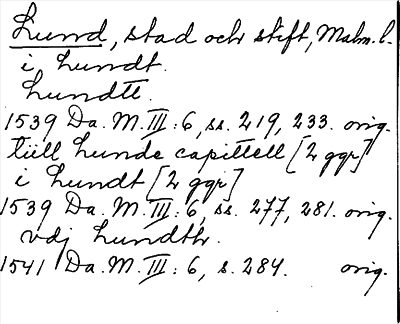 Lund, stad och stift, Malm. l.
i Lundt.
Lundtt.
1539 Da. M. III: 6, ss. 219, 233. orig.
tüll Lunde capittell [2 ggr]
i Lundt [2 ggr]
1539 Da. M. III: 6, ss. 277, 281. orig.
vdj Lundth.
1541 Da. M. III: 6, s. 284. orig.